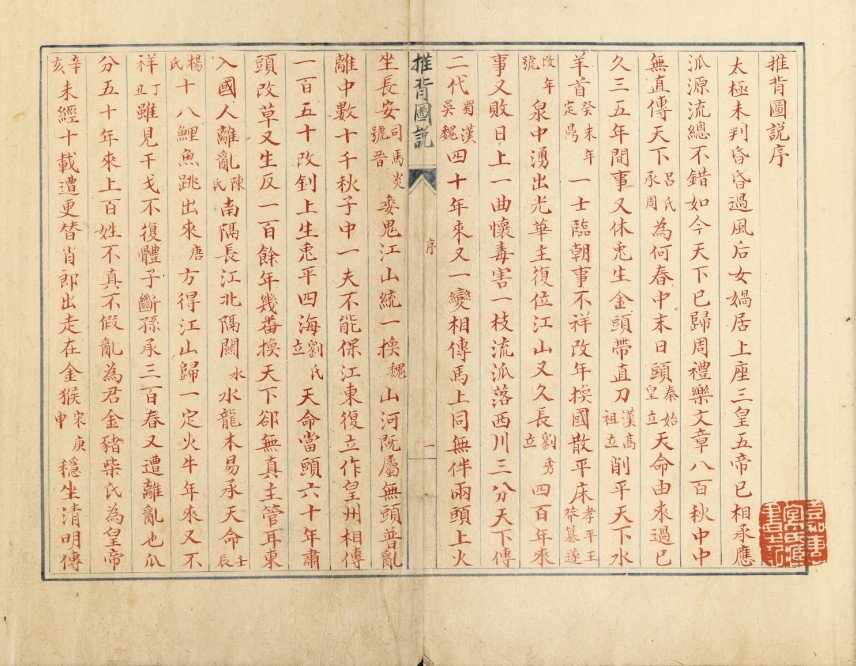 推背圖說序
太極未判昏昏過風后女媧居上座三皇五帝已相承應
派源流總不錯如今天下已歸周禮樂文章八百秋中中
無直傳天下呂氏承周為何春中末日頭秦始皇立天命由來過已
久三五年間事又休兎生金頭帶直刀漢高祖立削平天下水
羊首癸未年定鼎一士臨朝事不祥改年換國散平床孝平王莽篡遂
改年號泉中湧出光華主復位江山又久長劉秀立四百年來
事又敗日上一曲懷毒害一枝流派落西川三分天下傳
二代蜀漢吳魏四十年來又一變相傳馬上同無伴兩頭上火
推背圖說 序 一
坐長安司馬炎號晉委鬼江山統一換魏山河既屬無頭普亂
離中數十千秋子中一夫不能保江東復立作皇州相傳
一百五十改釗上生兎平四海劉氏立天命當頭六十年肅
頭改草又生反一百餘年幾番換天下卻無真主管耳東
入國人離亂陳氏南隔長江北隔關水水龍木易承天命壬辰
楊氏十八鯉魚跳出來唐方得江山歸一定火牛年來又不
祥丁丑雖見干戈不復體子斷孫承三百春又遭離亂也瓜
分五十年來上百姓不真不假亂為君金豬柴氏為皇帝
辛亥未經十載遭更替肖郎出走在金猴宋庚申穩坐清明傳